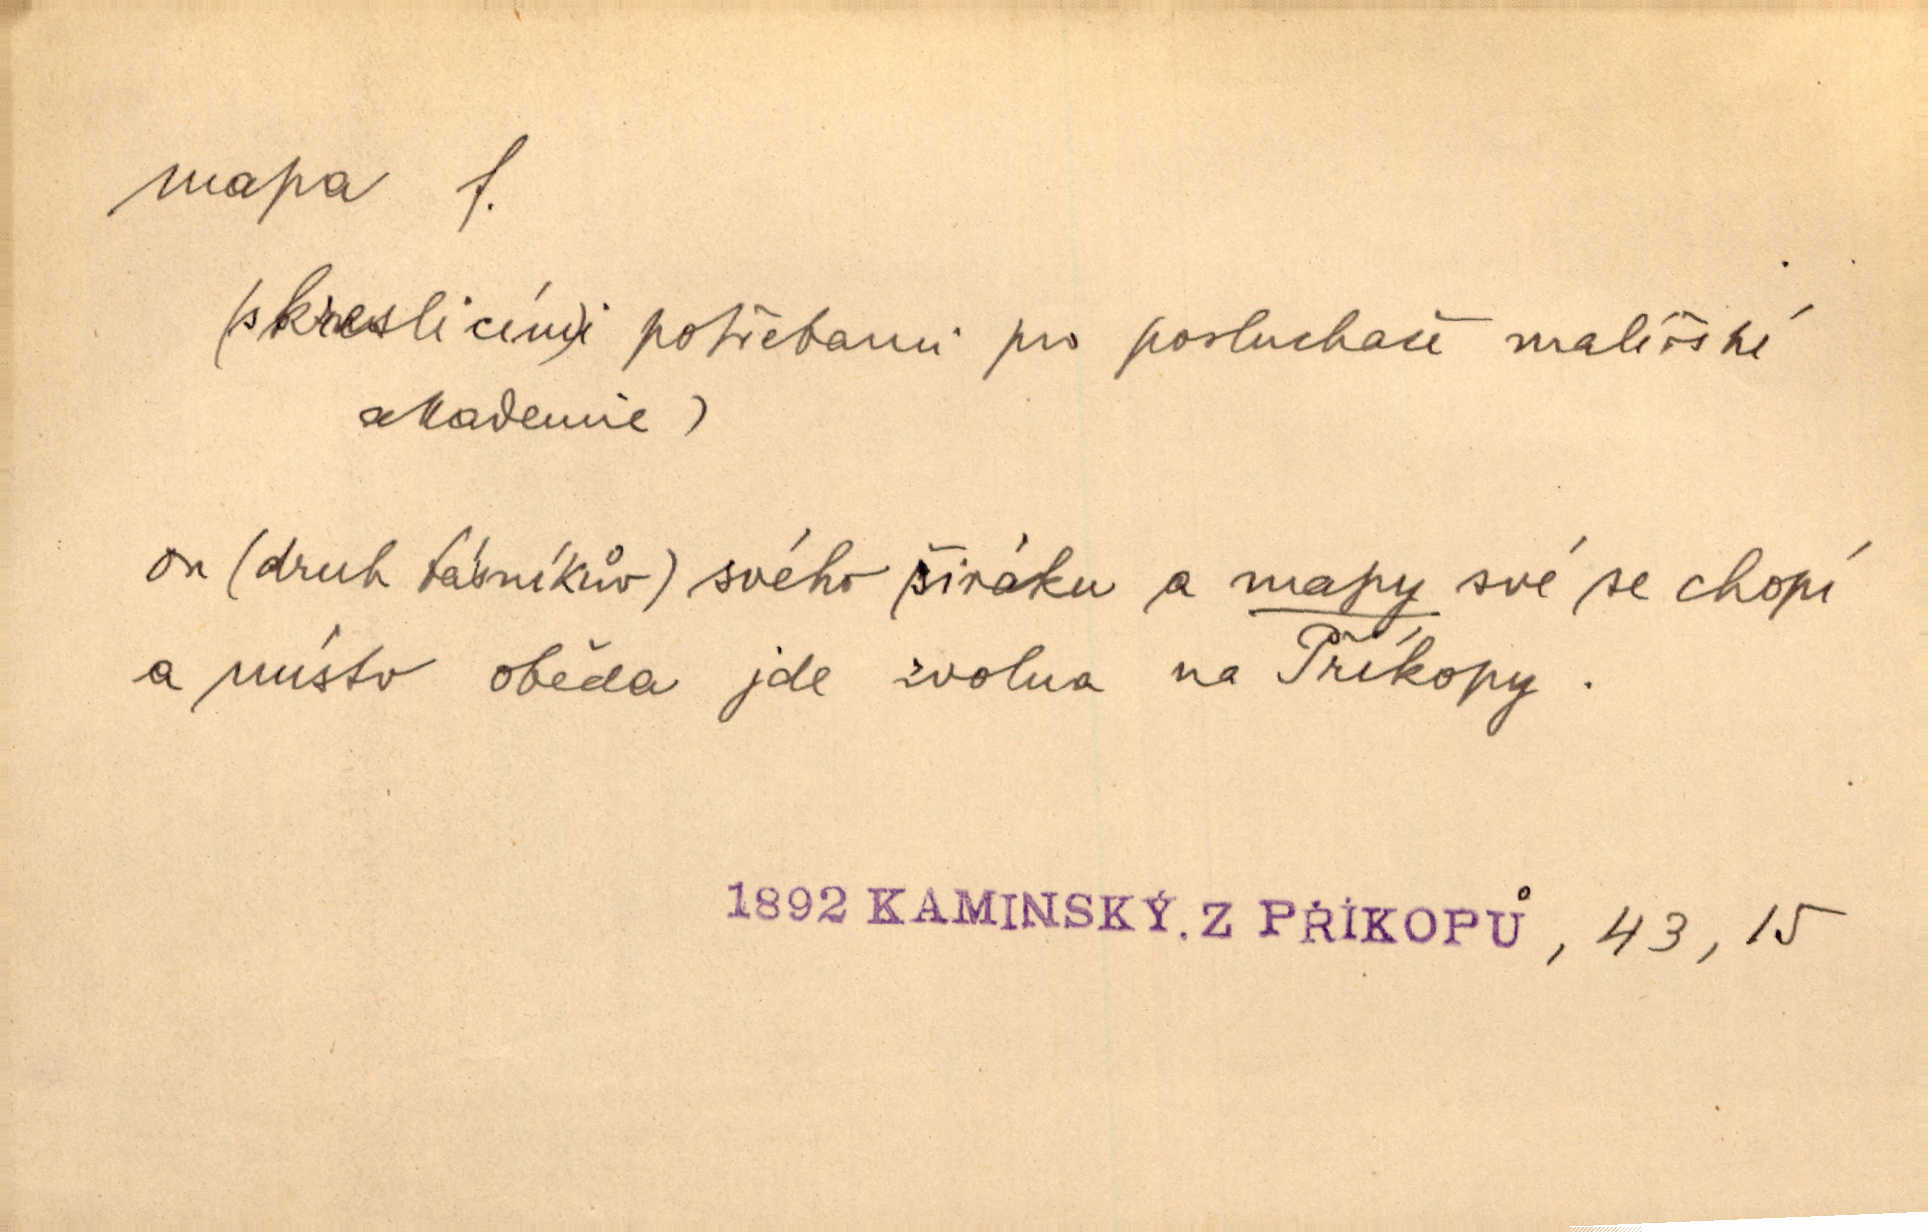 mapa f.
(s kreslicími potřebami pro posluchače malířské
akademie)
on (druh básníkův) svého širáku a mapy své se chopí
a místo oběda jde zvolna na Příkopy.
1892 KAMINSKÝ. Z PŘÍKOPŮ, 43, 15